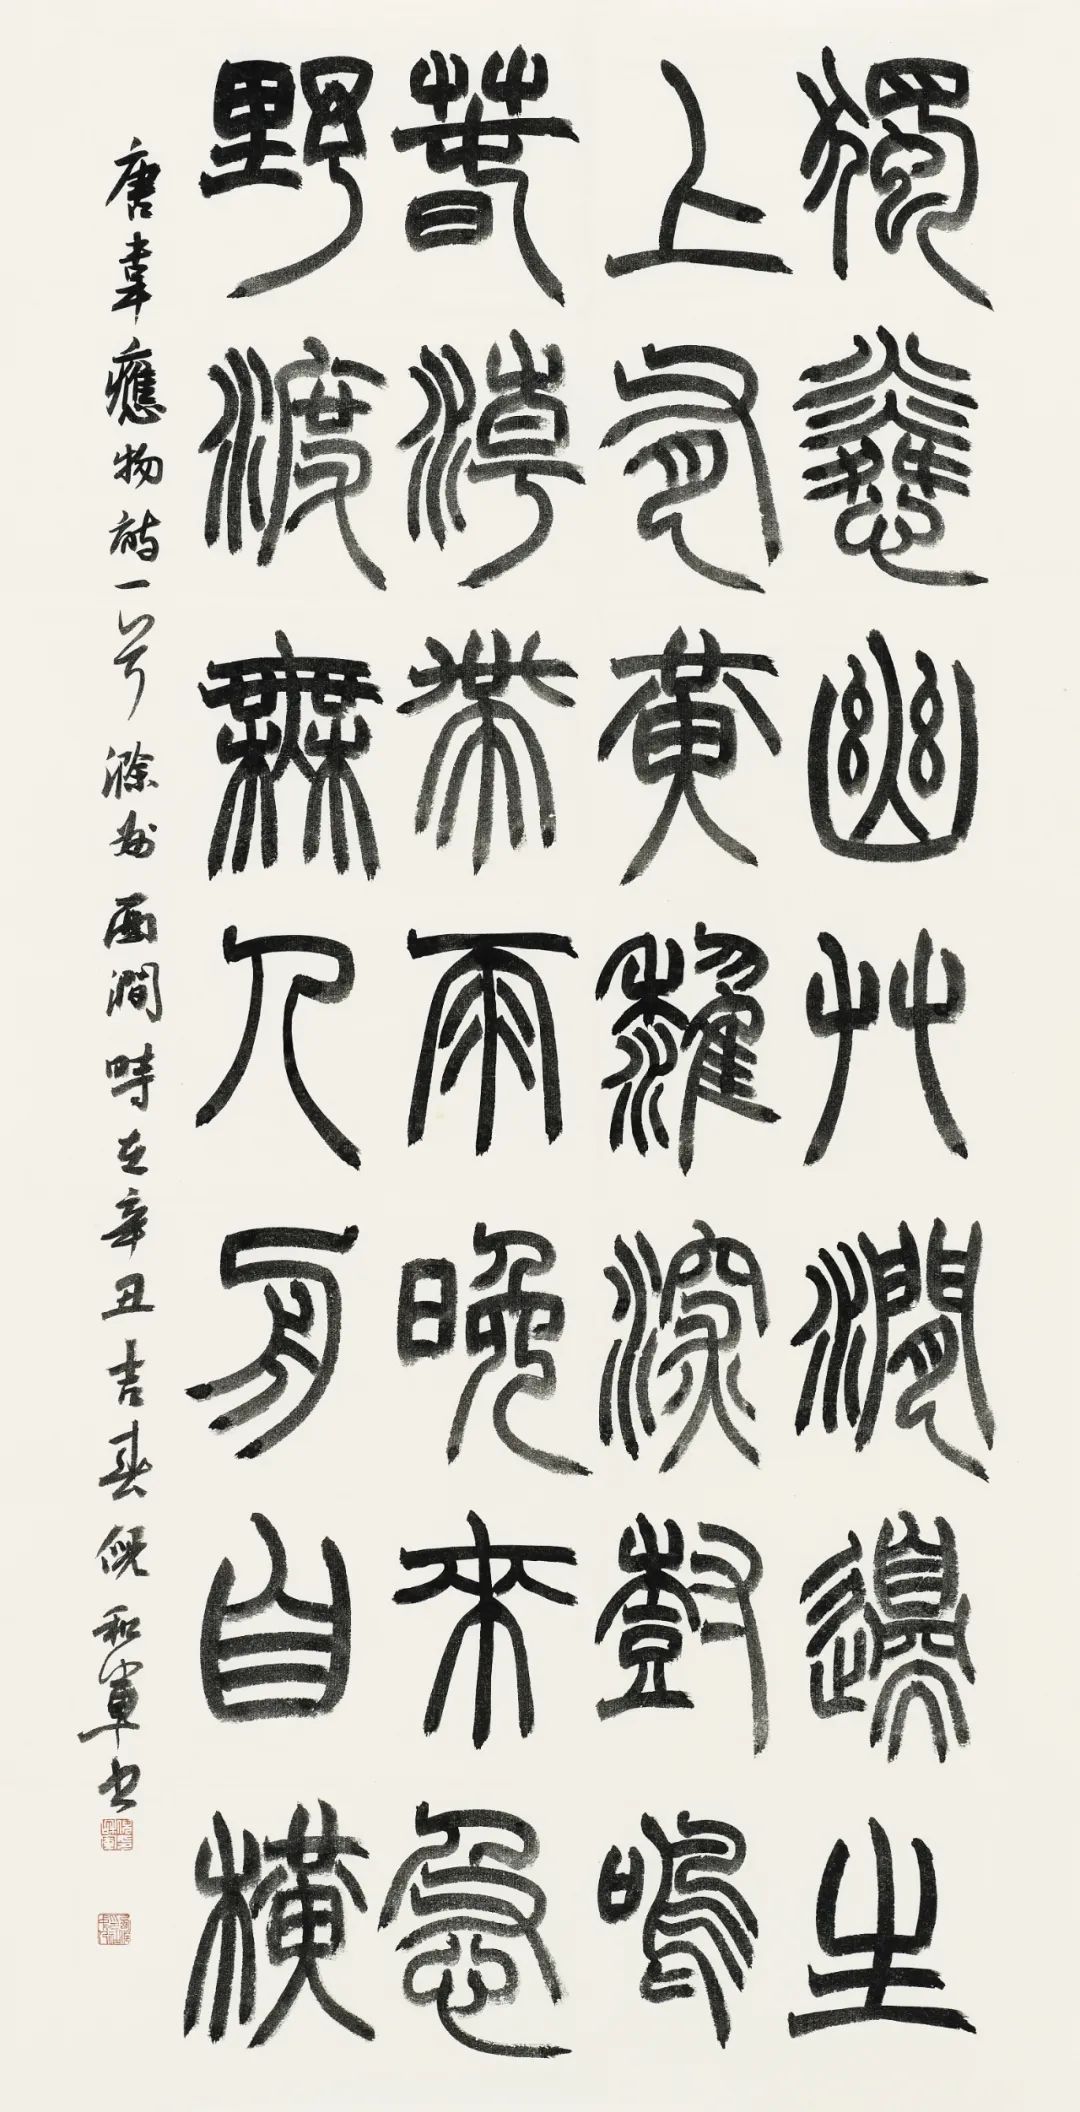 獨憐幽艸澗邊生
上有黃鸝深樹鳴
萅潮帶雨晚來急
野渡無人舟自橫
唐韋應物詩一首滁州西澗時在辛丑吉春倪和軍書